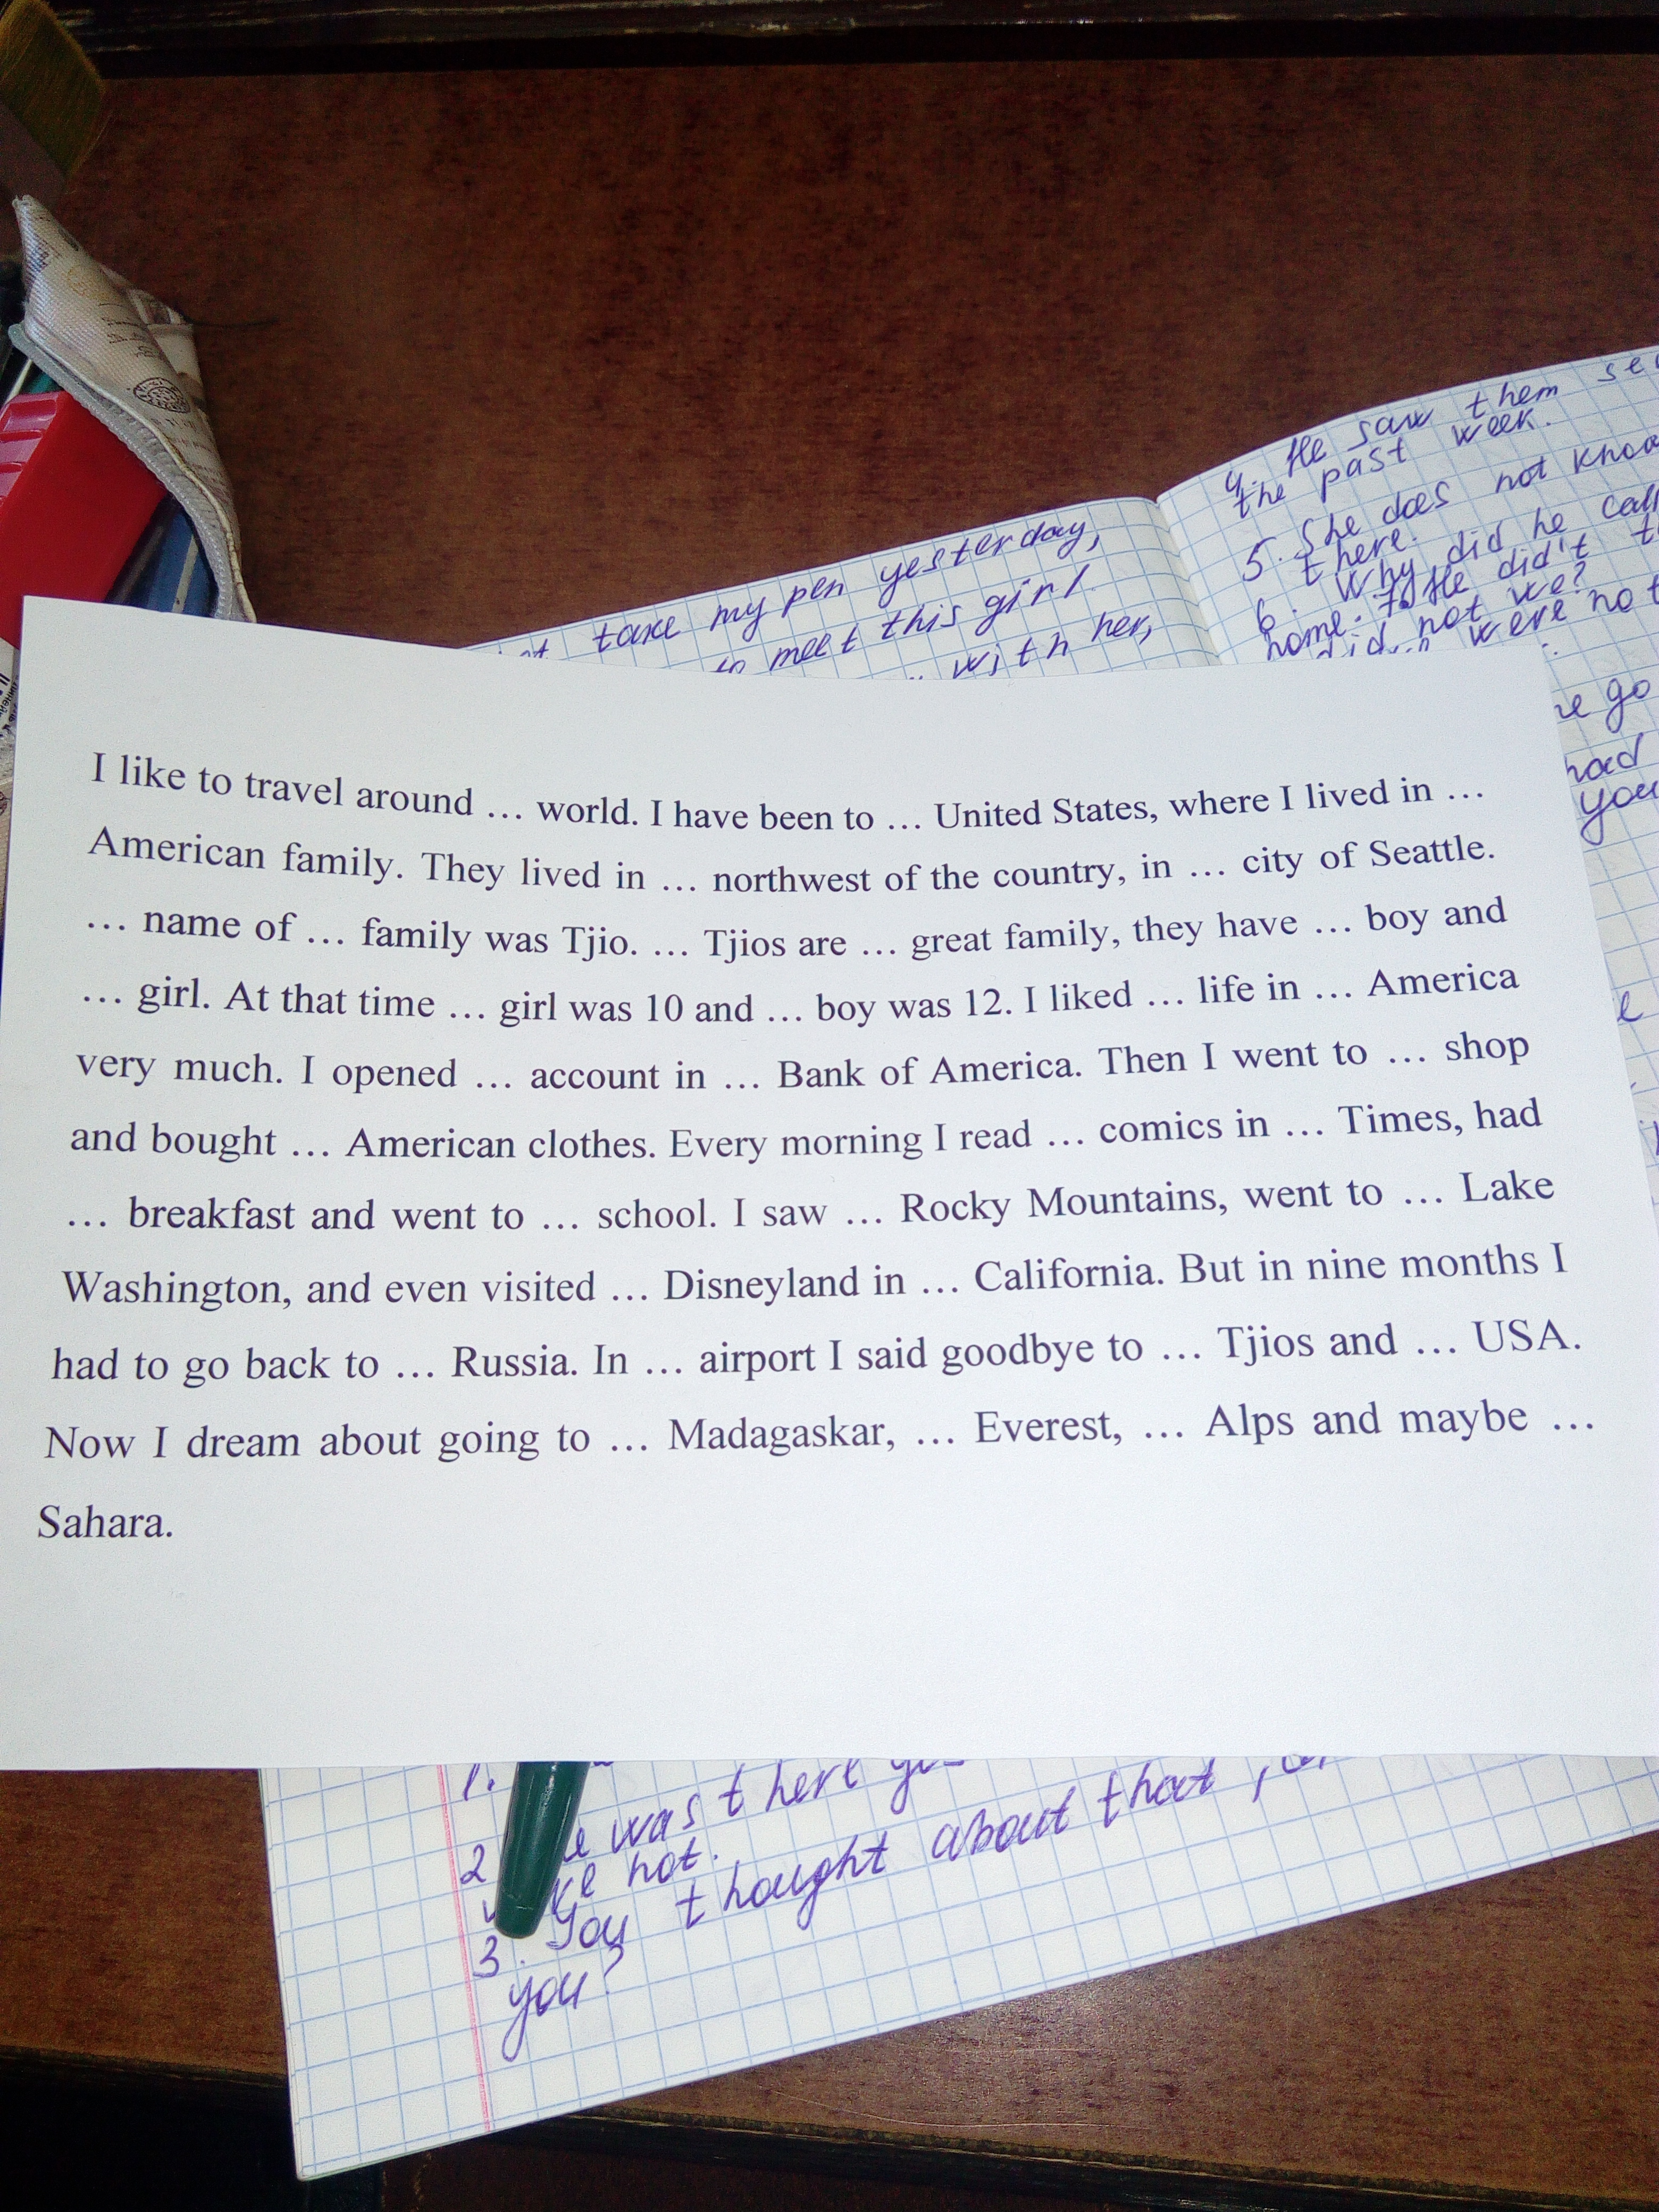 4. He saw them
the past week.
5. She does not
there.
6. Why did he
home: He didn't
not we?
were not
take my pen yesterday,
to meet this girl
with her,
go
had
you
I like to travel around … world. I have been to … United States, where I lived in …
American family. They lived in … northwest of the country, in … city of Seattle.
… name of … family was Tjio. … Tjios are … great family, they have … boy and
… girl. At that time … girl was 10 and … boy was 12. I liked … life in … America
very much. I opened … account in … Bank of America. Then I went to … shop
and bought … American clothes. Every morning I read … comics in … Times, had
… breakfast and went to … school. I saw … Rocky Mountains, went to … Lake
Washington, and even visited … Disneyland in … California. But in nine months I
had to go back to … Russia. In … airport I said goodbye to … Tjios and … USA.
Now I dream about going to … Madagaskar, … Everest, … Alps and maybe …
Sahara.
1.
was there
2
not.
3. You thought about that,
you?